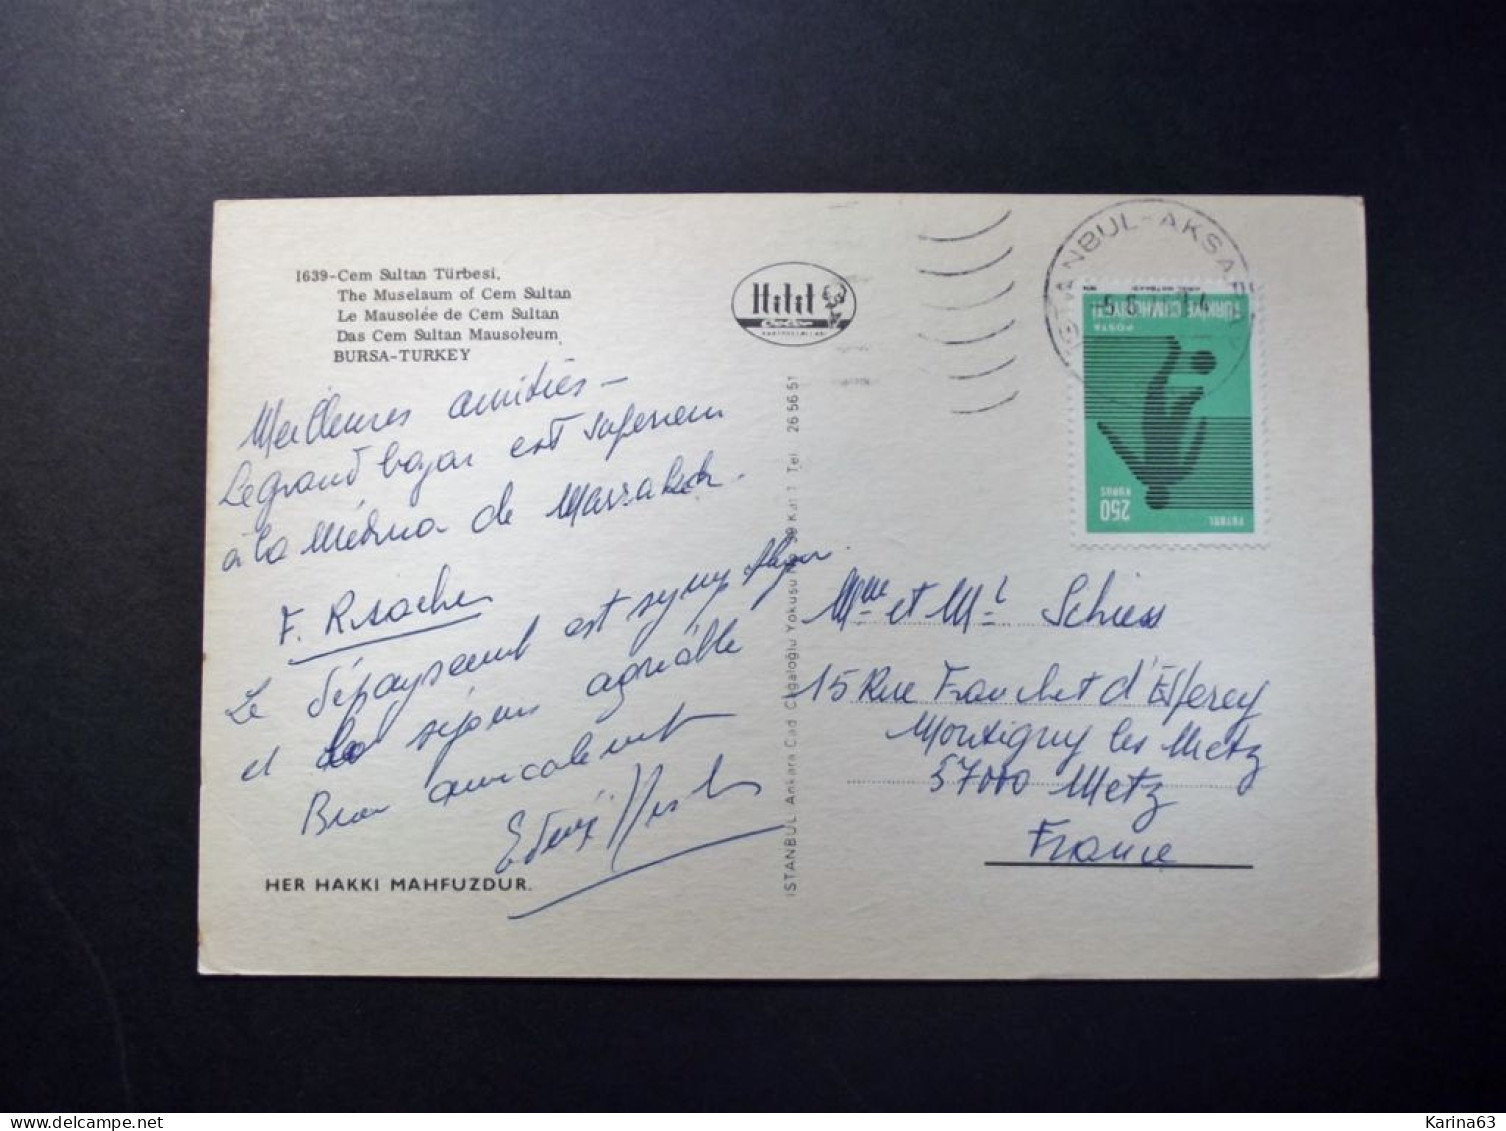 1639-Cem Sultan Türbesi.
The Muselaum of Cem Sultan
Le Mausolée de Cem Sultan
Das Cem Sultan Mausoleum
BURSA-TURKEY
Hitit
Meilleures amitiés -
Le grand bazar est supérieur
à la Médina de Marrakech.
F.
Le dépaysement est sympathique.
et le séjour agréable
Bien amicalement
HER HAKKI MAHFUZDUR.
İSTANBUL Ankara Cad Cağaloğlu Yokuşu No 39 Kat 1 Tel. 26 56 51
İSTANBUL-AKSARAY
TÜRKİYE CUMHURİYETİ
POSTA
250
KURUŞ
FUTBOL
Mme et Mr Schiess
15 Rue Franchet d'Esperey
Montigny les Metz
57000 Metz
France
Karina63